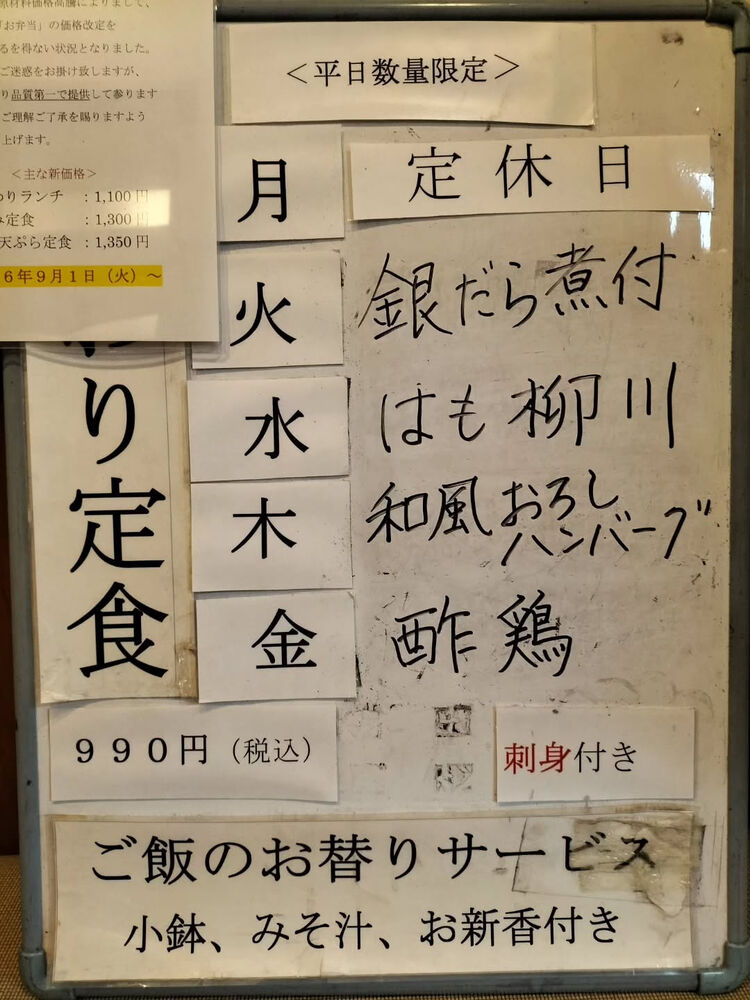 原材料価格高騰によりまして、
「お弁当」の価格改定を
るを得ない状況となりました。
ご迷惑をお掛け致しますが、
り品質第一で提供して参ります
ご理解ご了承を賜りますよう
上げます。
＜主な新価格＞
わりランチ ：1,100円
み定食 ：1,300円
天ぷら定食 ：1,350円
6年9月1日（火）～
＜平日数量限定＞
月 定休日
火 銀だら煮付
水 はも柳川
木 和風おろし
ハンバーグ
金 酢鶏
わり定食
９９０円（税込）
刺身付き
ご飯のお替りサービス
小鉢、みそ汁、お新香付き